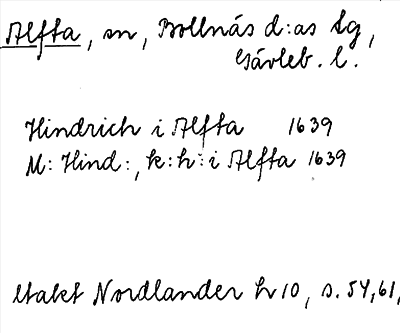 Alfta, sn, Bollnäs d:as tg,
Gävleb. l.
Hindrich i Alfta 1639
M: Hind:, k:h: i Alfta 1639
Utakt Nordlander h 10, s. 54, 61,